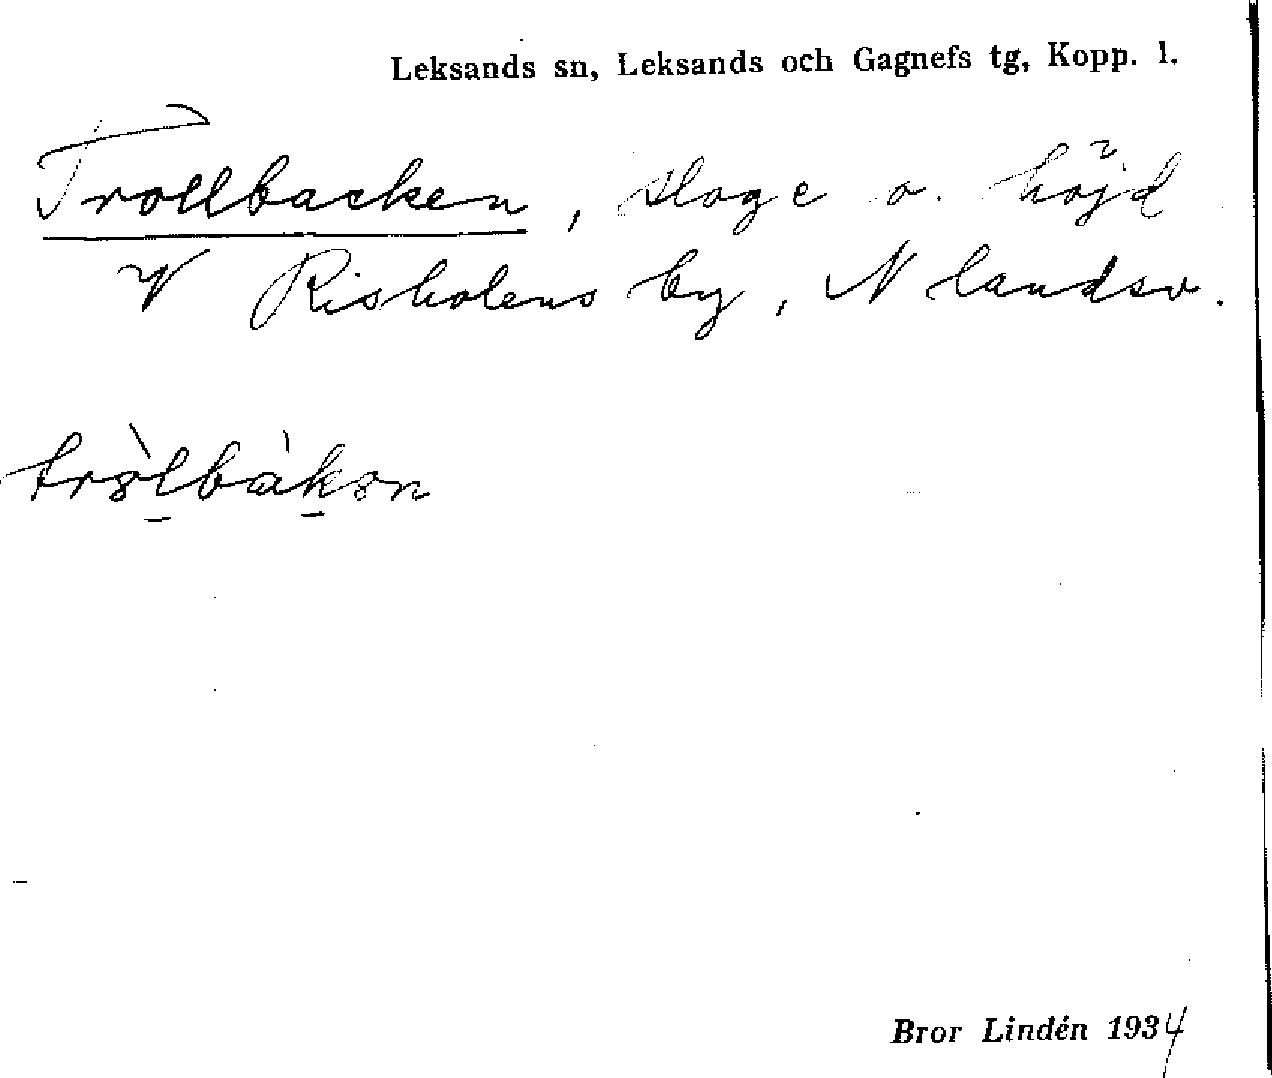 Leksands sn, Leksands och Gagnefs tg, Kopp. l.
Trollbacken, skoge o. höjd
V Risholens by, N landsv.
tròlbàkən
Bror Lindén 1934